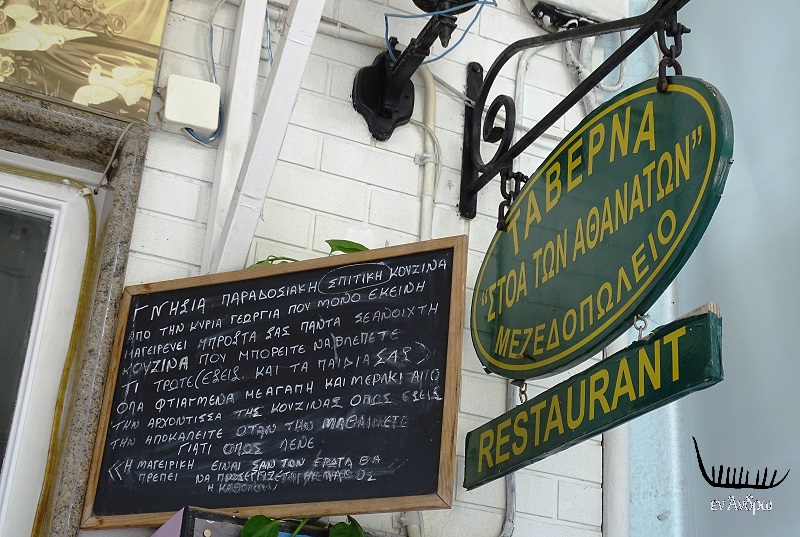 ΓΝΗΣΙΑ ΠΑΡΑΔΟΣΙΑΚΗ ΣΠΙΤΙΚΗ ΚΟΥΖΙΝΑ
ΑΠΟ ΤΗΝ ΚΥΡΙΑ ΓΕΩΡΓΙΑ ΠΟΥ ΜΟΝΟ ΕΚΕΙΝΗ
ΜΑΓΕΙΡΕΥΕΙ ΜΠΡΟΣΤΑ ΣΑΣ ΠΑΝΤΑ ΣΕ ΑΝΟΙΧΤΗ
ΚΟΥΖΙΝΑ ΠΟΥ ΜΠΟΡΕΙΤΕ ΝΑ ΒΛΕΠΕΤΕ
ΤΙ ΤΡΩΤΕ (ΕΣΕΙΣ ΚΑΙ ΤΑ ΠΑΙΔΙΑ ΣΑΣ)
ΟΛΑ ΦΤΙΑΓΜΕΝΑ ΜΕ ΑΓΑΠΗ ΚΑΙ ΜΕΡΑΚΙ ΑΠΟ
ΤΗΝ ΑΡΧΟΝΤΙΣΣΑ ΤΗΣ ΚΟΥΖΙΝΑΣ ΟΠΩΣ ΕΣΕΙΣ
ΤΗΝ ΑΠΟΚΑΛΕΙΤΕ ΟΤΑΝ ΤΗΝ ΜΑΘΑΙΝΕΤΕ
ΓΙΑΤΙ ΟΠΩΣ ΛΕΝΕ
«Η ΜΑΓΕΙΡΙΚΗ ΕΙΝΑΙ ΣΑΝ ΤΟΝ ΕΡΩΤΑ ΘΑ
ΠΡΕΠΕΙ ΝΑ
Η ΚΑΘΟΛΟΥ
ΤΑΒΕΡΝΑ
"ΣΤΟΑ ΤΩΝ ΑΘΑΝΑΤΩΝ"
ΜΕΖΕΔΟΠΩΛΕΙΟ
RESTAURANT
εν Άνδρω